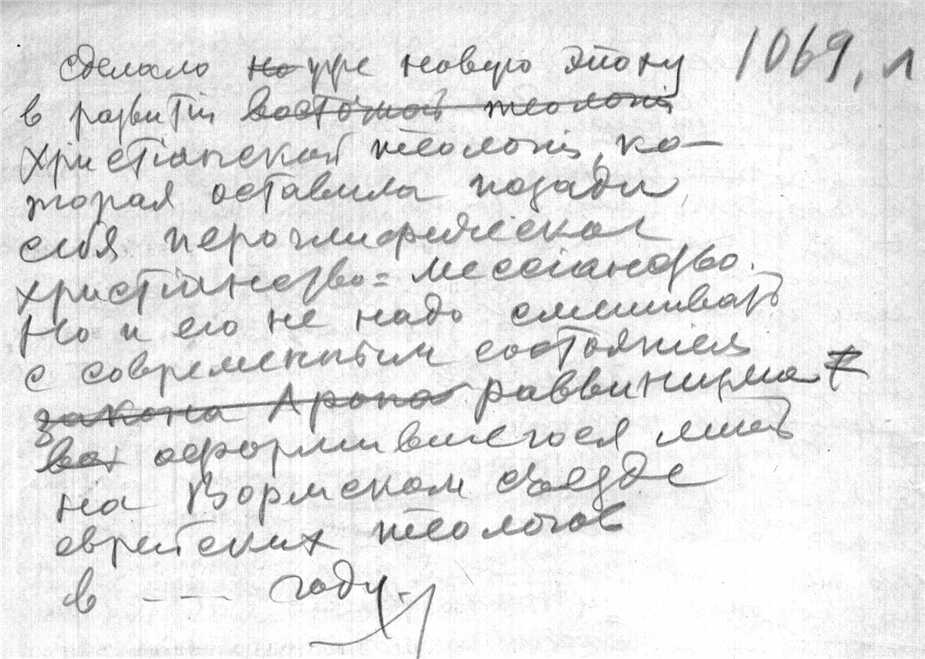 сделало но уже новую эпоху 1069, л
в развитіи восточной теологіи
христіанской теологіи, ко-
торая оставила позади
себя иероглифическое
христіанство = мессіанство.
Но и его не надо смешивать
с современным состояніем
закона Арона раввинизма
вот оформившегося лишь
на Вормском съезде
еврейских теологов
в ---- году.